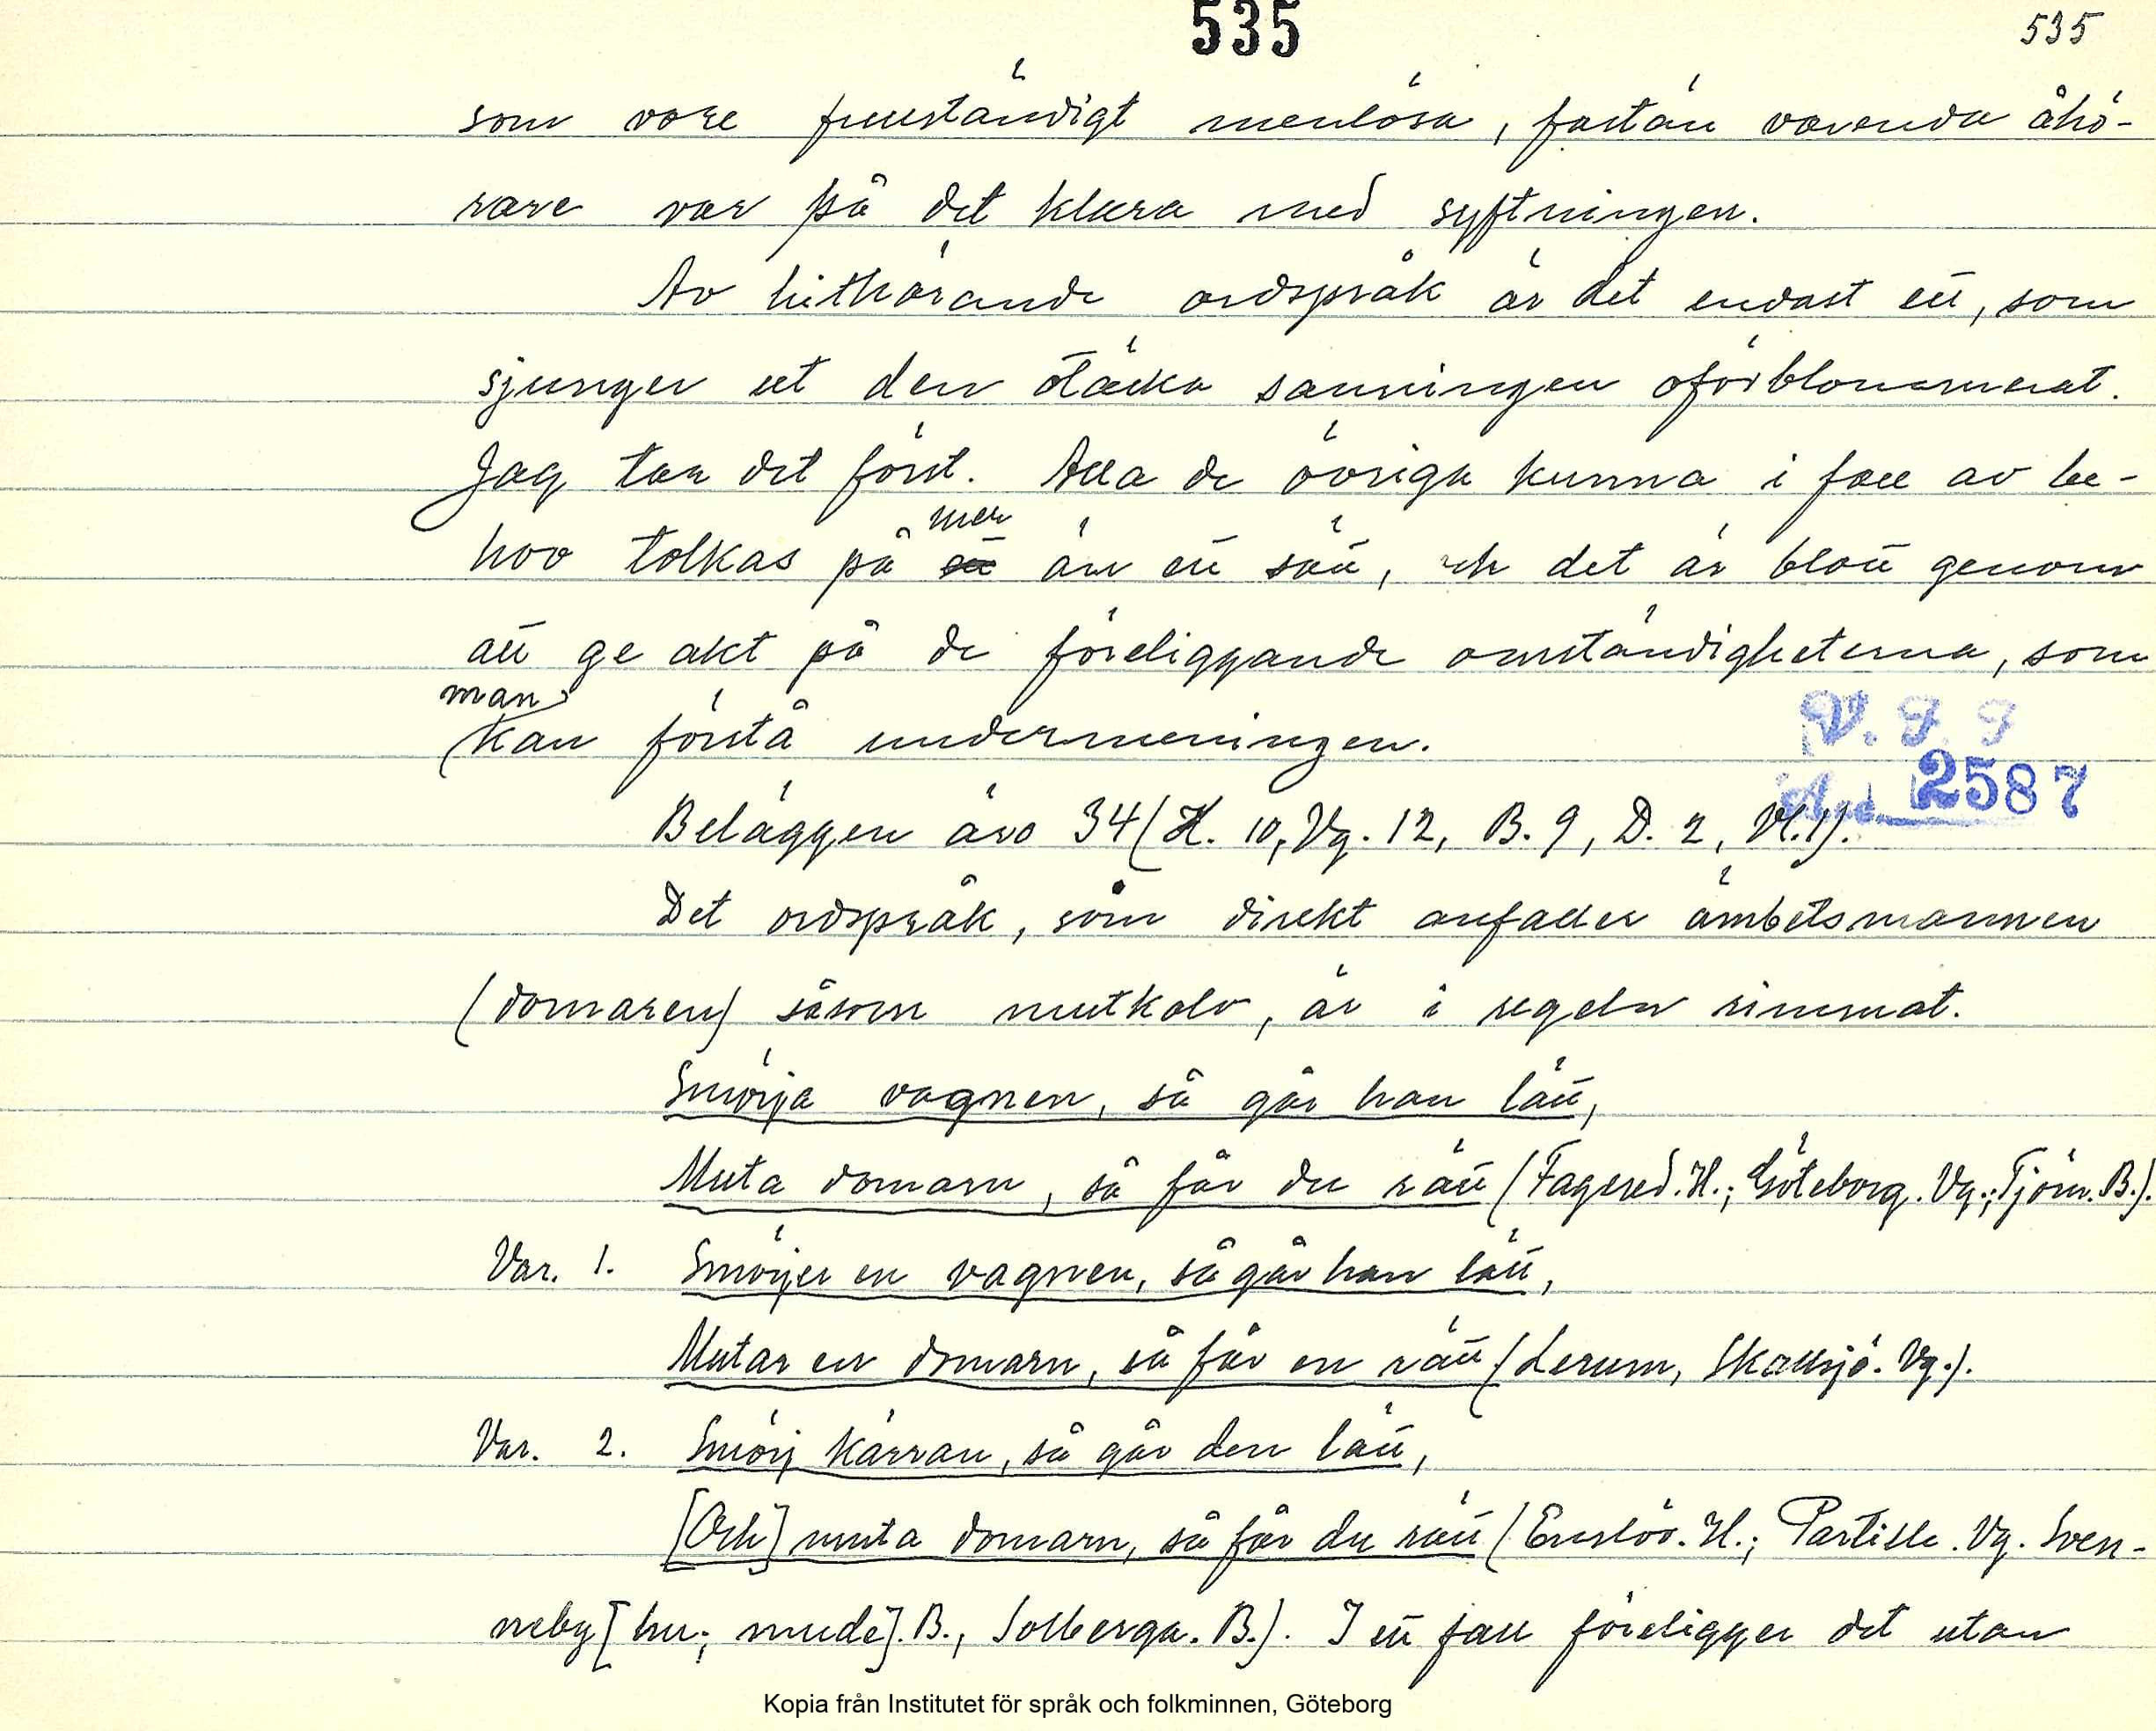 535
535
som vore fullständigt menlösa, fastän varenda åhö-
rare var på det klara med syftningen.
Av hithörande ordspråk är det endast ett, som
sjunger ut den otäcka sanningen oförblommerat.
Jag tar det först. Alla de övriga kunna i fall av be-
hov tolkas på mer än ett sätt, och det är blott genom
att ge akt på de föreliggande omständigheterna, som
man kan förstå undermeningen.
V. F. F.
Acc. 2587
Beläggen äro 34 (H. 10, Vg. 12, B. 9, D. 2, Vl. 1).
Det ordspråk, som direkt anfaller ämbetsmannen
(domaren) såsom mutkolv, är i regeln rimmat.
Smörja vagnen, så går han lätt,
Muta domarn, så får du rätt (Fagered. H.; Göteborg. Vg.; Tjörn. B.).
Var. 1. Smörjer en vagnen, så går han lätt,
Mutar en domarn, så får en rätt (Lerum, Skallsjö. Vg.).
Var. 2. Smörj kärran, så går den lätt,
[Och] muta domarn, så får du rätt (Enslöv. H.; Partille. Vg. Sven-
neby [hu; mude]. B., Solberga. B.). I ett fall föreligger det utan
Kopia från Institutet för språk och folkminnen, Göteborg